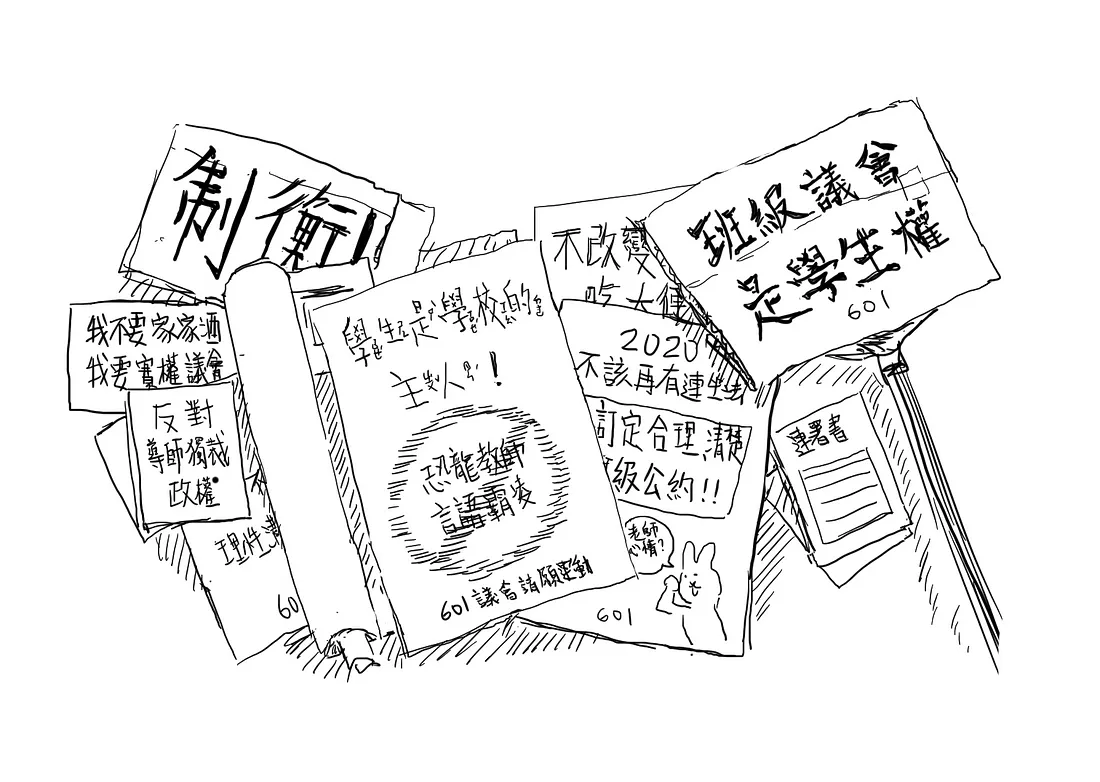 制衡
我不要家家酒
我要實權議會
反對
導師獨裁
政權
理性
601
學生是學校的
主人!
恐龍教師
言語霸凌
601議會請願運動
不改變
吃大便
2020
不該再有連坐法
訂定合理清楚
班級公約!!
老師
心情?
601
班級議會
是學生權
601
連署書